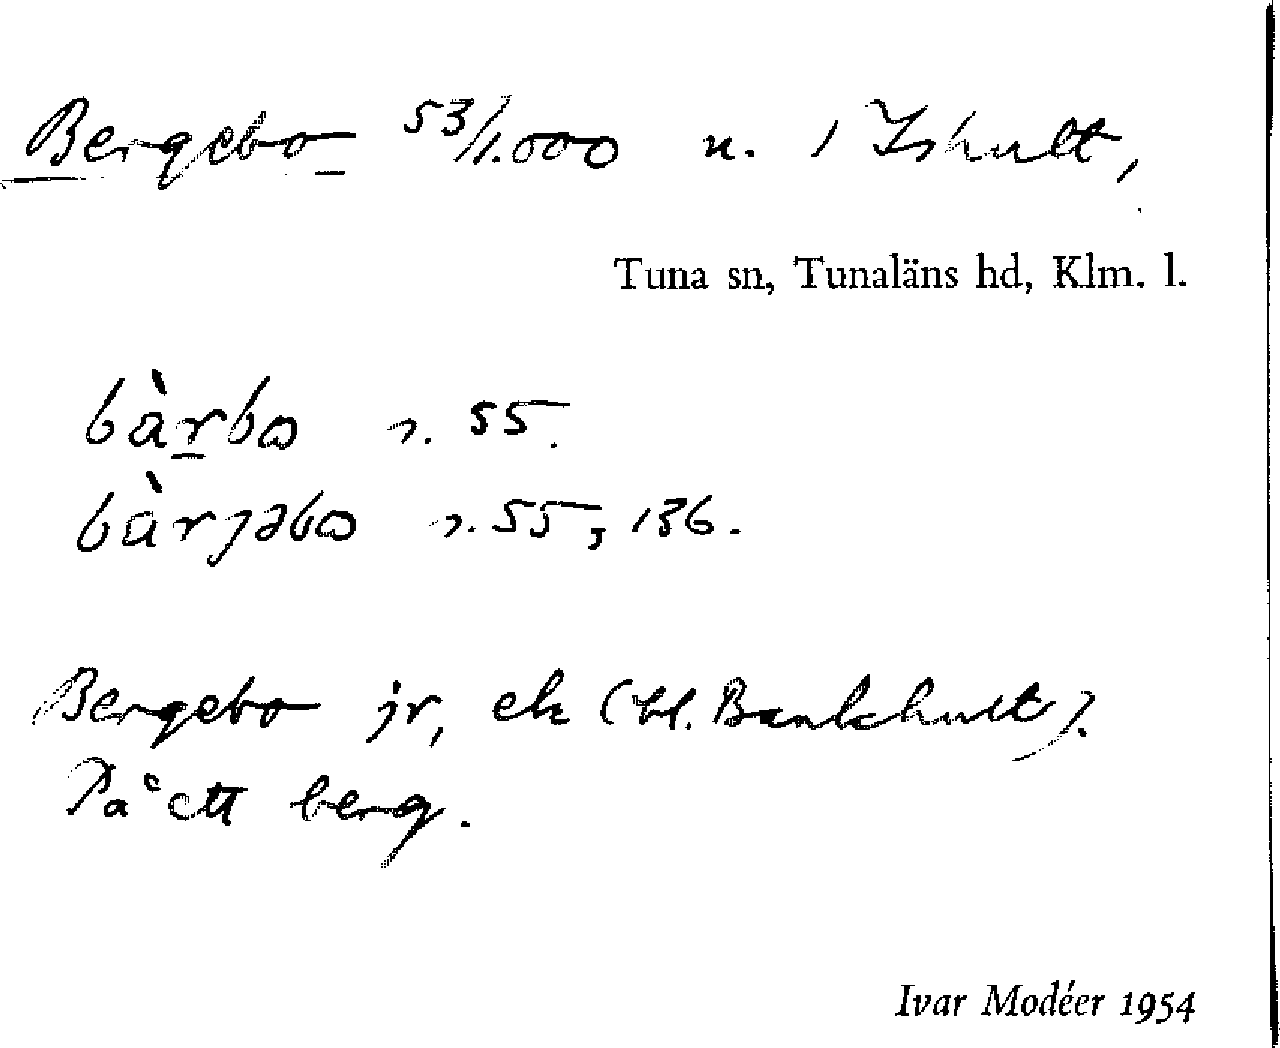 Bergebo 53/1.000 n. 1 Ishult,
Tuna sn, Tunaläns hd, Klm. l.
bàrbo s. 55.
bàrjəbo s. 55, 136.
Bergebo jr, ek (bl. Bankhult).
På ett berg.
Ivar Modéer 1954